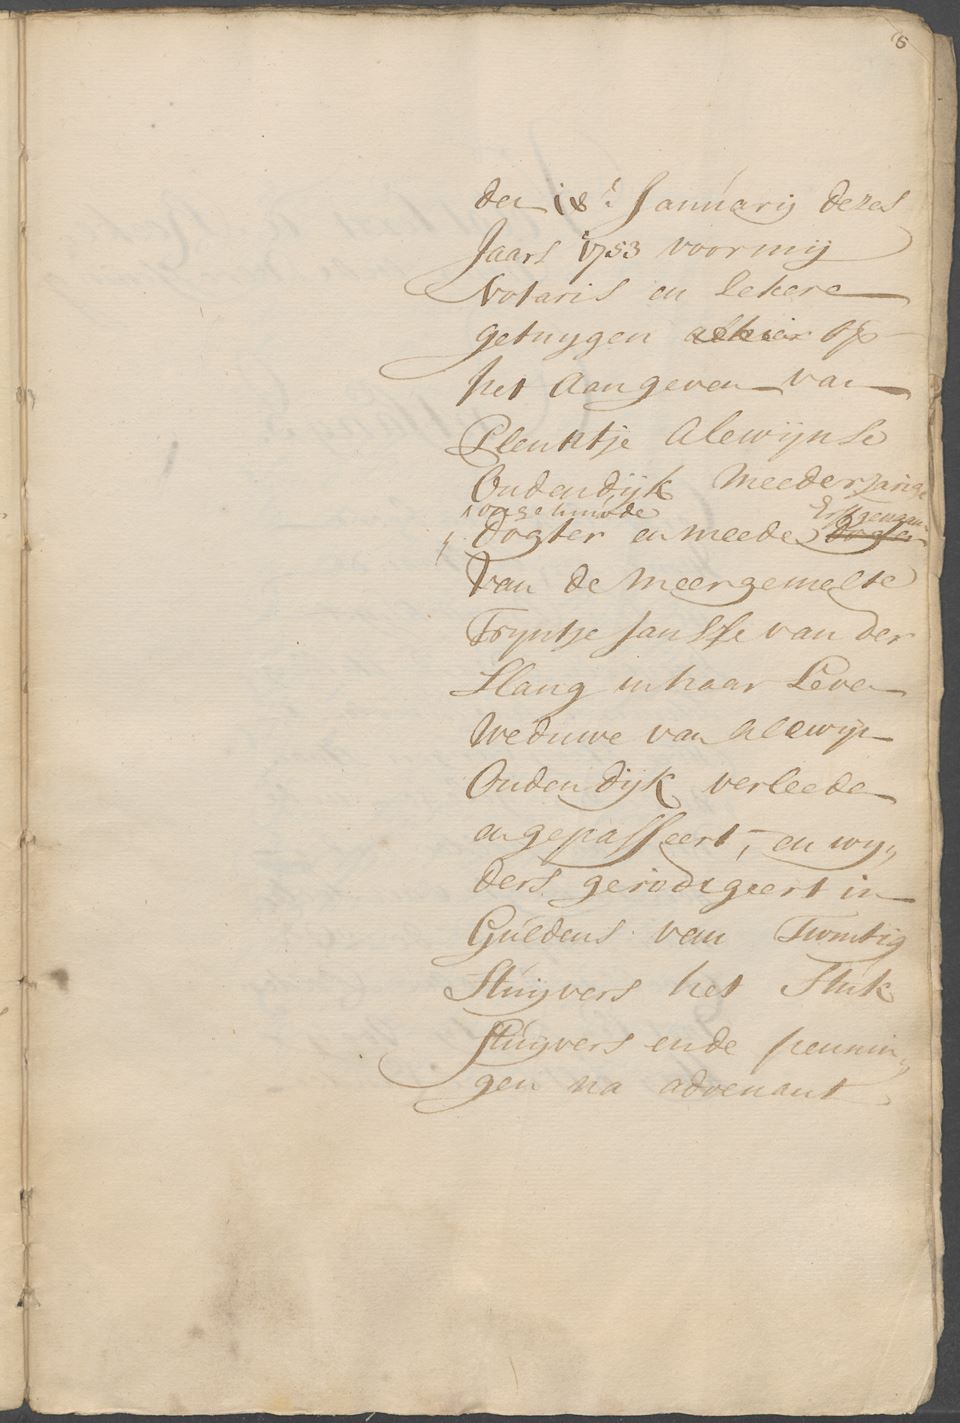 6
den 18e Januarij dezes
Jaars 1753 voor mij
Notaris en Sekere
getuygen alhier op
het aangeven van
Pleuntje Alewijnse
Oudendijk Meederjarige
ongehuwde Erffgenaam
Dogter en meede dogter
van de meergemelte
Tryntje Jansse van der
Slang in haar Leven
Weduwe van Alewijn
Oudendijk verleeden
en gepasseert, en wy„
ders geredigeert in
Guldens van Twintig
Stuyvers het Stuk
Stuyvers ende pennin„
gen na advenant